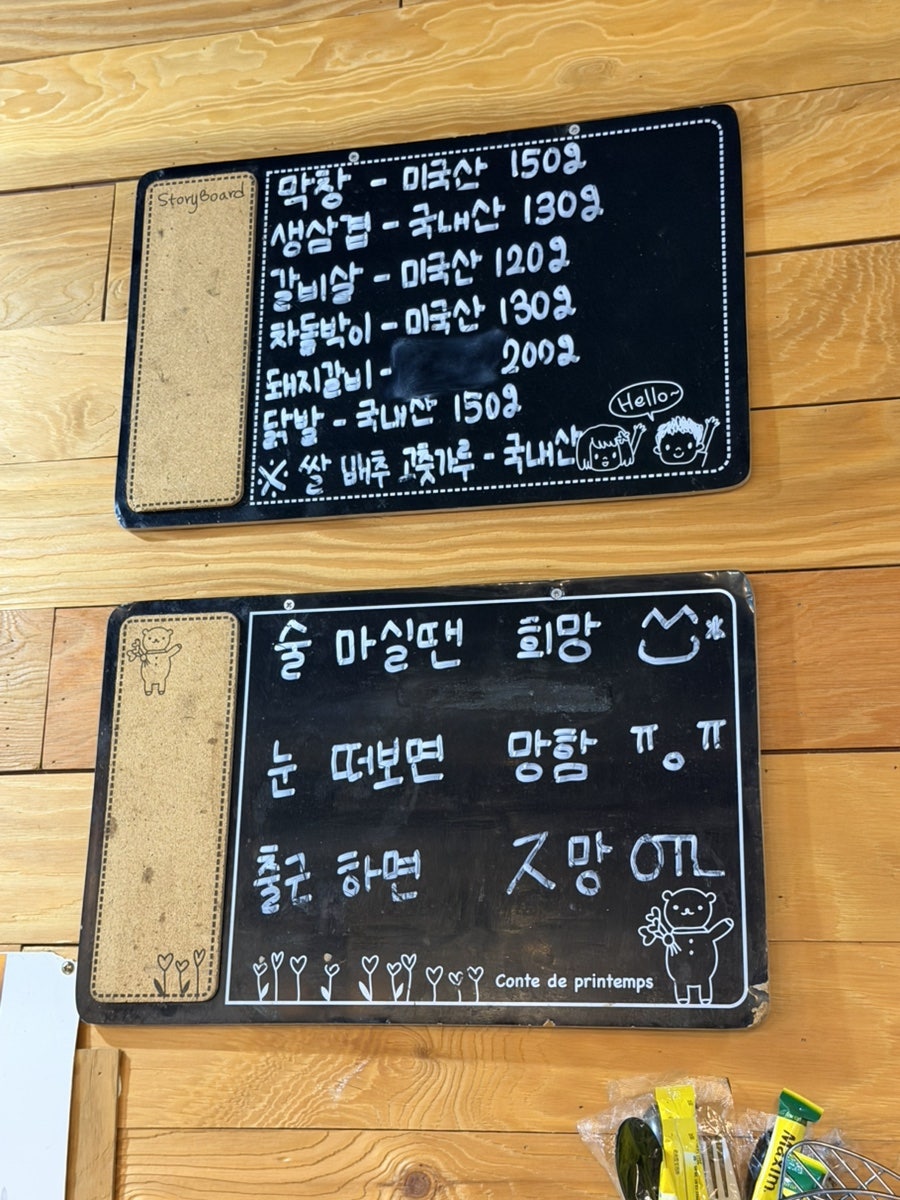 StoryBoard
막창 - 미국산 150g
생삼겹 - 국내산 130g
갈비살 - 미국산 120g
차돌박이 - 미국산 130g
돼지갈비 - 200g
닭발 - 국내산 150g
※ 쌀 배추 고춧가루 - 국내산
Hello~
술 마실땐 희망
눈 떠보면 망함 ㅠ.ㅠ
출근 하면 ㅈ망 OTL
Conte de printemps
Maxim